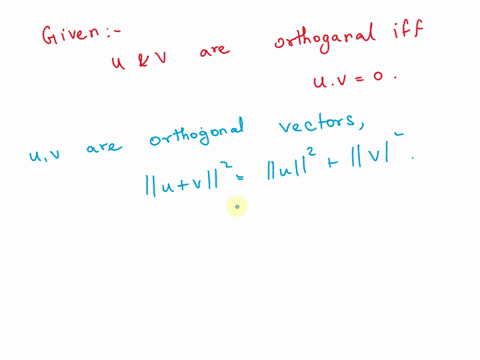 Given:-
u & v are orthoganal iff
u.v = 0.
u,v are orthogonal vectors,
||u+v||² = ||u||² + ||v|².